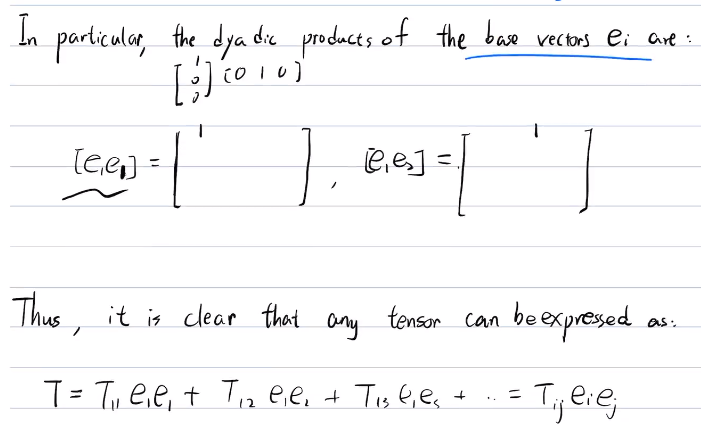 In particular, the dyadic products of the base vectors ei are:
[1 0 0] [0 1 0]
[e1e1] = [1 ], [e1e2] = [1 ]
Thus, it is clear that any tensor can be expressed as:
T = T11 e1e1 + T12 e1e2 + T13 e1e3 + .. = Tij eiej